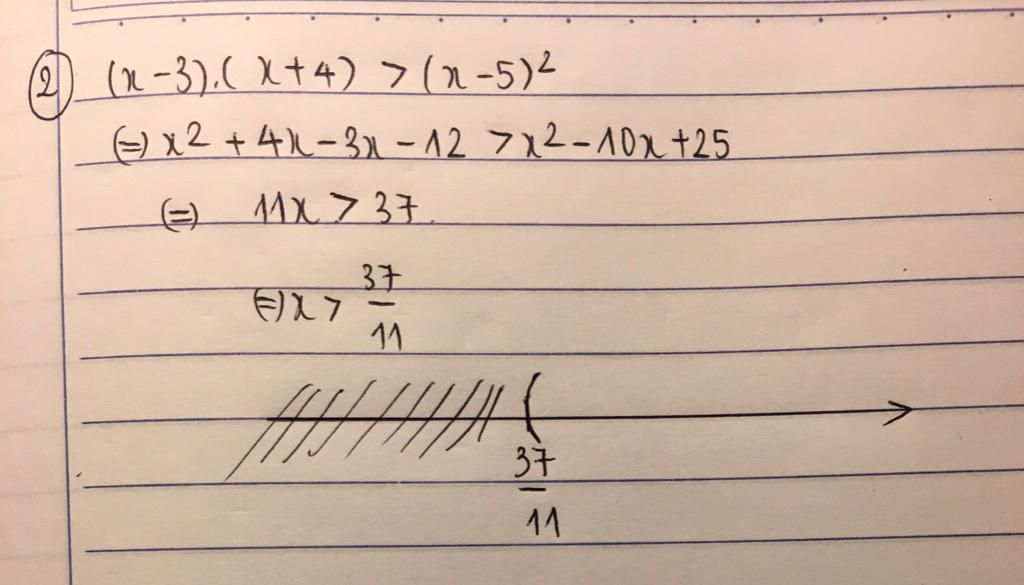 ② (x-3).(x+4) > (x-5)²
(=) x2 + 4x - 3x - 12 > x2 - 10x + 25
(=) 11x > 37.
(=) x > 37/11
(
37/11